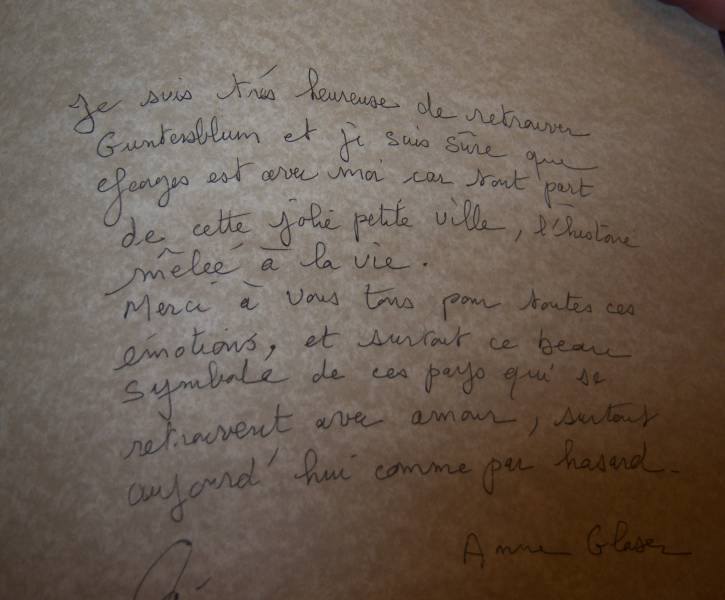 Je suis très heureuse de retrouver
Guntersblum et je suis sûre que
Georges est avec moi car tout part
de cette jolie petite ville, l'histoire
mêlée à la vie.
Merci à vous tous pour toutes ces
émotions, et surtout ce beau
symbole de ces pays qui se
retrouvent avec amour, surtout
aujourd'hui comme par hasard.
Anne Glaser